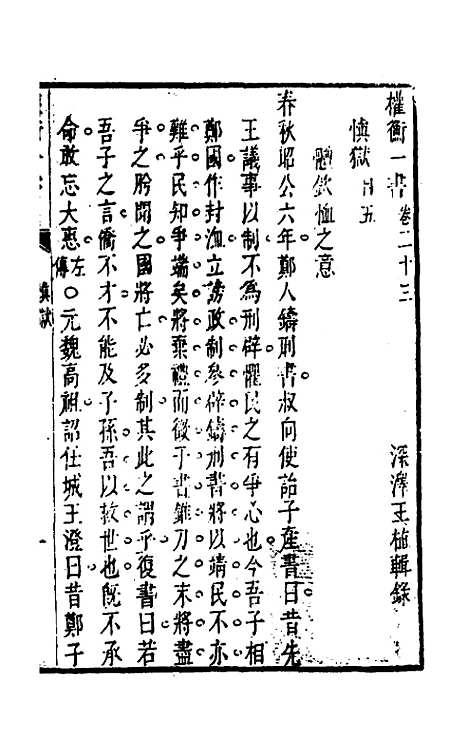 權衡一書 卷二十三 深澤王植輯錄
慎獄 目五
體欽恤之意
春秋昭公六年鄭人鑄刑書叔向使詒子產書曰昔先
王議事以制不為刑辟懼民之有爭心也今吾子相
鄭國作封洫立謗政制參辟鑄刑書將以靖民不亦
難乎民知爭端矣將棄禮而徵于書錐刀之末將盡
爭之肸聞之國將亡必多制其此之謂乎復書曰若
吾子之言僑不才不能及子孫吾以救世也旣不承
命敢忘大惠左傳○元魏高祖詔任城王澄曰昔鄭子
慎獄
一